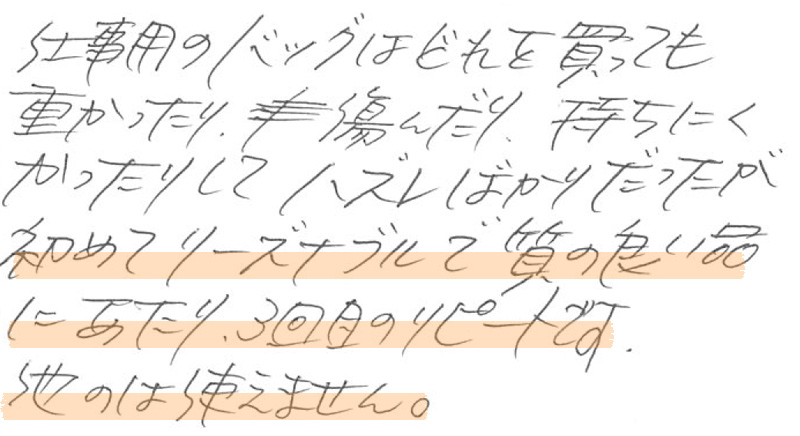 仕事用のバッグはどれを買っても
重かったり、傷んだり、持ちにく
かったりしてハズレばかりだったが
初めてリーズナブルで質の良い品
にあたり、3回目のリピートです。
他のは使えません。